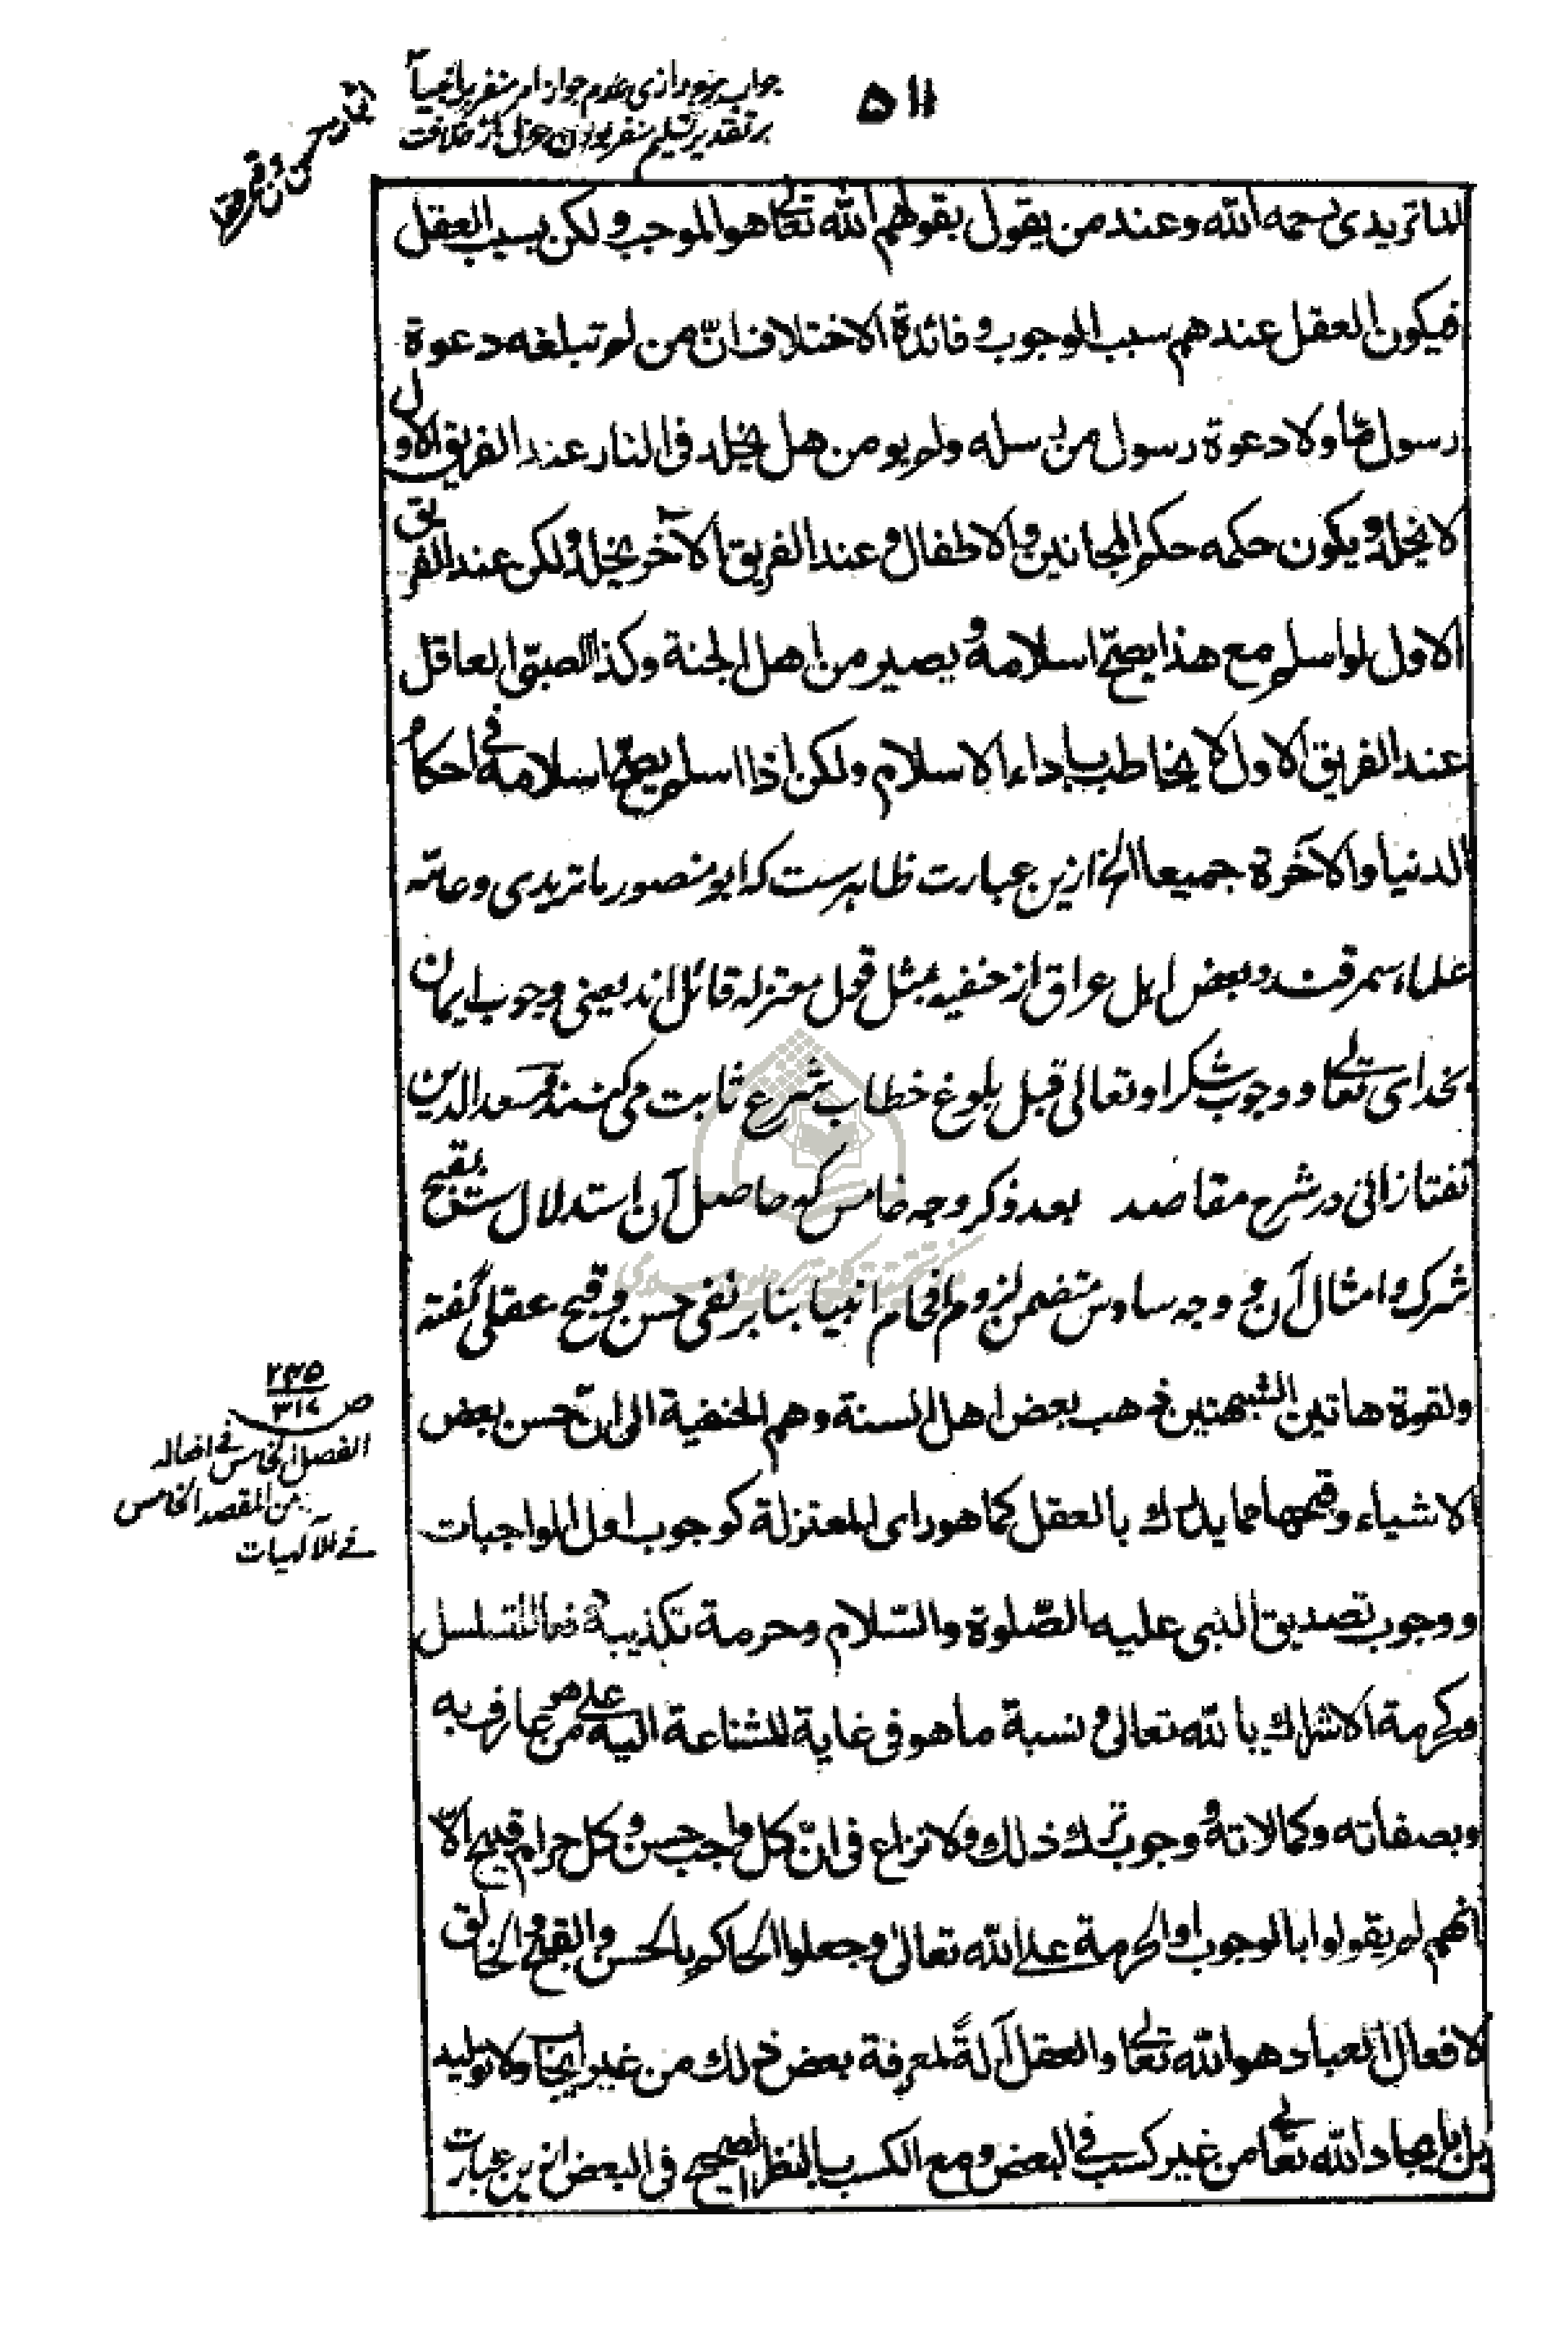 ۵۱۱
جواب مزعوم رازی عدم جواز امر منفر بر انبیا
بر تقدیر تسلیم منفر بودن عزل از خلافت
الماتریدی رحمه الله وعند من یقول بقولهم الله تعالی هو الموجب ولکن بسبب العقل
فیکون العقل عندهم سبب الوجوب و فائدة الاختلاف انّ من لم تبلغه دعوة
رسول ما ولا دعوة رسول من رسله ولم یومن هل یخلد فی النار عند الفریق الاول
لا یخلد و یکون حکمه حکم المجانین والاطفال و عند الفریق الآخر یخلد ولکن عند الفریق
الاول لو اسلم مع هذا یصحّ اسلامه و یصیر من اهل الجنة وکذا الصبیّ العاقل
عند الفریق الاول لا یخاطب باداء الاسلام ولکن اذا اسلم یصحّ اسلامه فی احکام
الدنیا والآخرة جمیعا الخ ازین عبارت ظاهرست که ابو منصور ماتریدی و عامّه
علماء سمرقند و بعض اهل عراق از حنفیه بمثل قول معتزله قائل اند یعنی وجوب ایمان
بخدای تعالی و وجوب شکر او تعالی قبل بلوغ خطاب شرع ثابت می کنند و سعد الدین
تفتازانی در شرح مقاصد بعد ذکر وجه خامس که حاصل آن استدلال ست بقبح
شرک و امثال آن و وجه سادس متضمن لزوم افحام انبیا بنابر نفی حسن و قبح عقلی گفته
ولقوة هاتین الشبهتین ذهب بعض اهل السنة وهم الحنفیة الی انّ حسن بعض
الاشیاء وقبحها مما یدرك بالعقل کما هو رای المعتزلة کوجوب اول الواجبات
ووجوب تصدیق النبی علیه الصّلوة والسّلام وحرمة تکذیبه دفعا للتسلسل
وکحرمة الاشراك بالله تعالی و نسبة ما هو فی غایة الشناعة الیه علی من هو عارف به
وبصفاته وکمالاته و وجوب ترك ذلك ولا نزاع فی انّ کل واجب حسن و کل حرام قبیح الّا
انهم لم یقولوا بالوجوب او الحرمة علی الله تعالی وجعلوا الحاکم بالحسن والقبح والخالق
لافعال العباد هو الله تعالی والعقل آلةً لمعرفة بعض ذلك من غیر ایجاب ولا تولید
بل بایجاد الله تعالی من غیر کسب فی البعض ومع الکسب بالنظر الصحیح فی البعض ازین عبارت
ص ۲۳۵
۳۱۷
الفصل الخامس فی افعاله
من المقصد الخامس
فی الالهیات